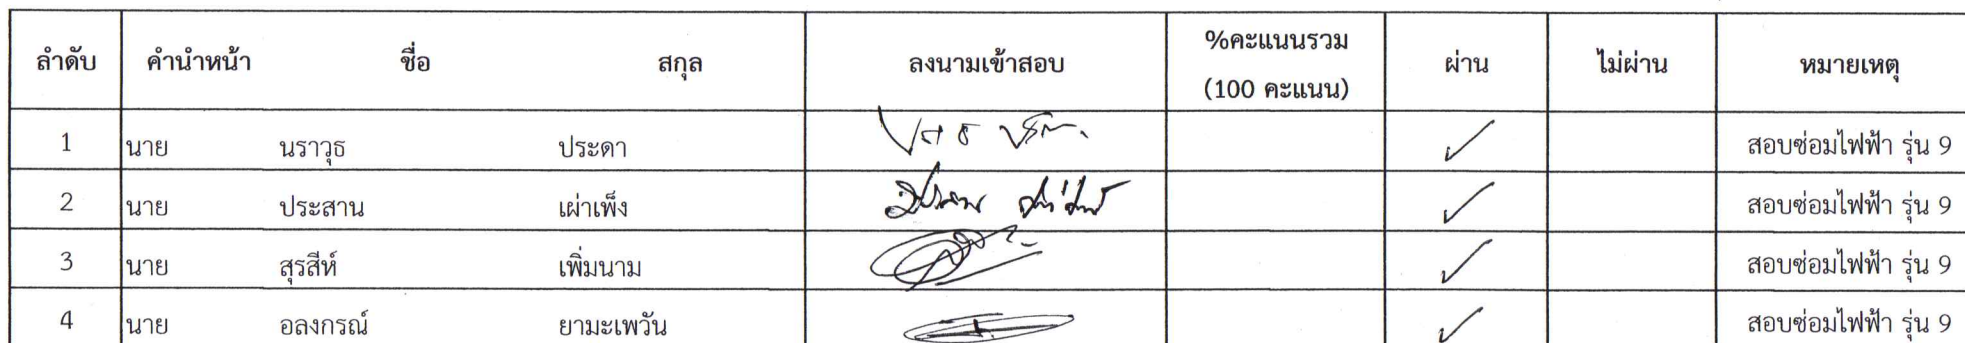 ลำดับ คำนำหน้า ชื่อ สกุล ลงนามเข้าสอบ %คะแนนรวม (100 คะแนน) ผ่าน ไม่ผ่าน หมายเหตุ
1 นาย นราวุธ ประดา ✓ สอบซ่อมไฟฟ้า รุ่น 9
2 นาย ประสาน เผ่าเพ็ง ✓ สอบซ่อมไฟฟ้า รุ่น 9
3 นาย สุรสีห์ เพิ่มนาม ✓ สอบซ่อมไฟฟ้า รุ่น 9
4 นาย อลงกรณ์ ยามะเพวัน ✓ สอบซ่อมไฟฟ้า รุ่น 9